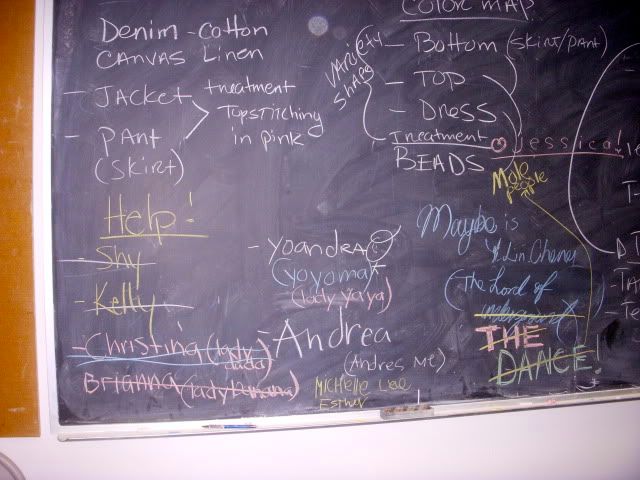 Denim - cotton
CANVAS Linen
- JACKET treatment
Topstitching
in pink
- PANT
(SKIRT)
COLOR MAP
VARIETY
SHAPE
- Bottom (skirt/pant)
- TOP
- DRESS
Treatment
BEADS
Jessica!
Mole
people
Help!
- Shy
- Kelly
- Christina (lady
dada)
Brianna (lady banana)
- yoandra
(yoyoma)
(lady yaya)
- Andrea
(Andres Me)
Michelle Lee
Esther
Maybe is
Lin Cheng
(The Lord of
underground)
THE
DANCE!